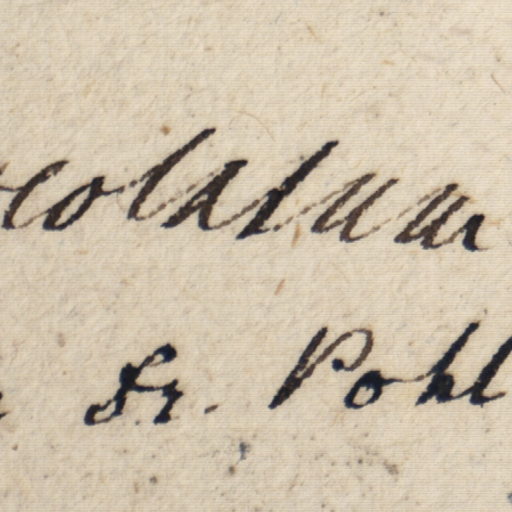 eolatum
Dr. Pohl